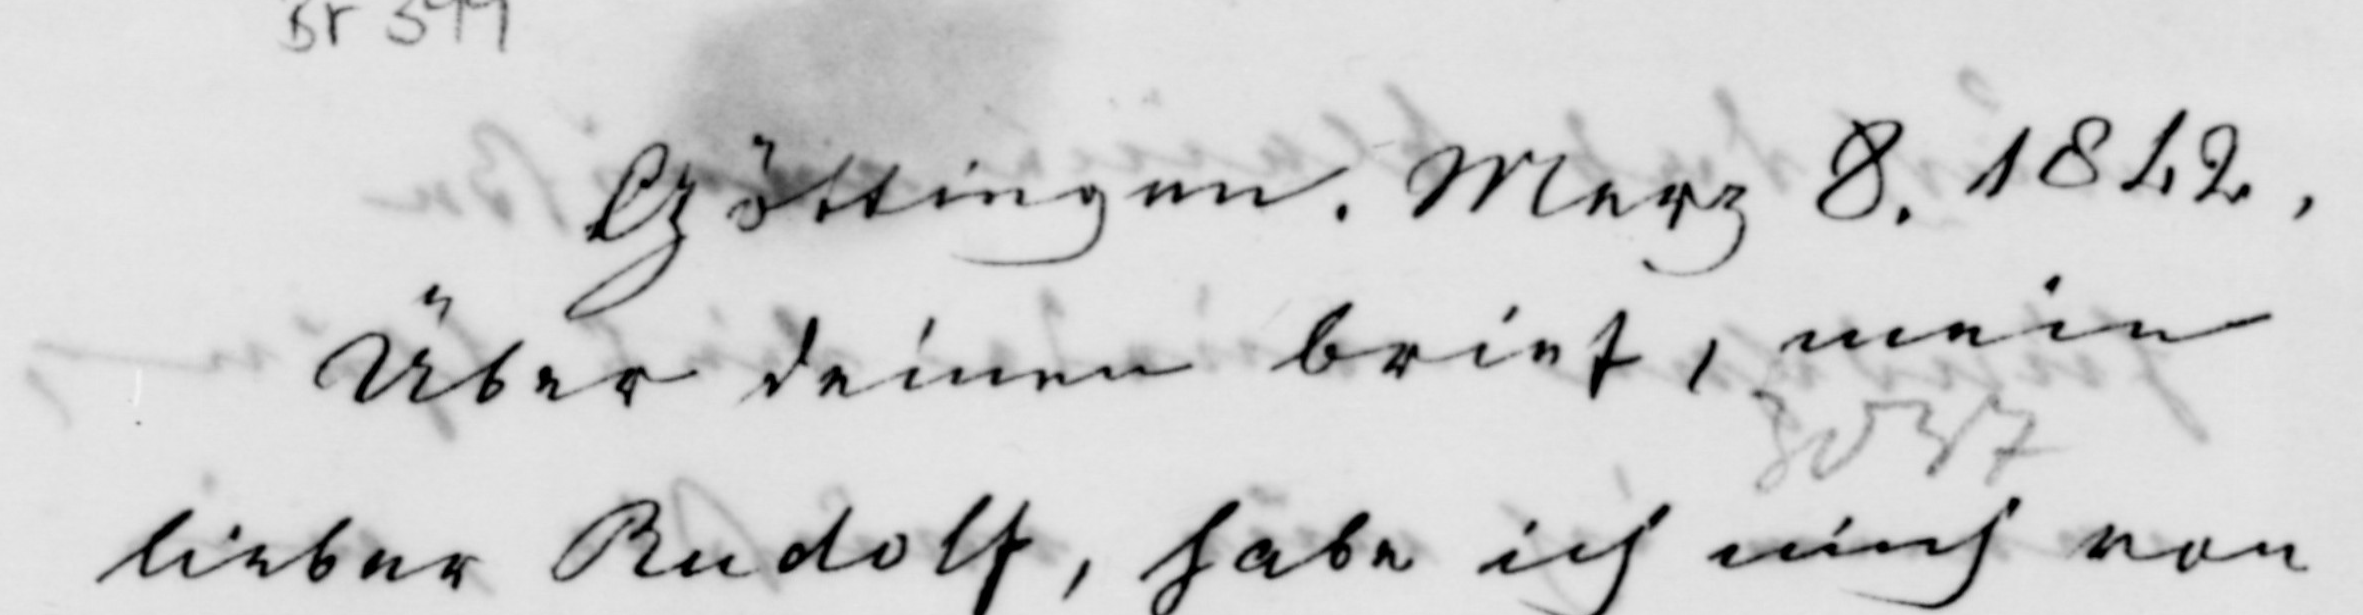 Br 399
Göttingen. Merz 8. 1842,
Über deinen brief, mein
lieber Rudolf, habe ich mich von